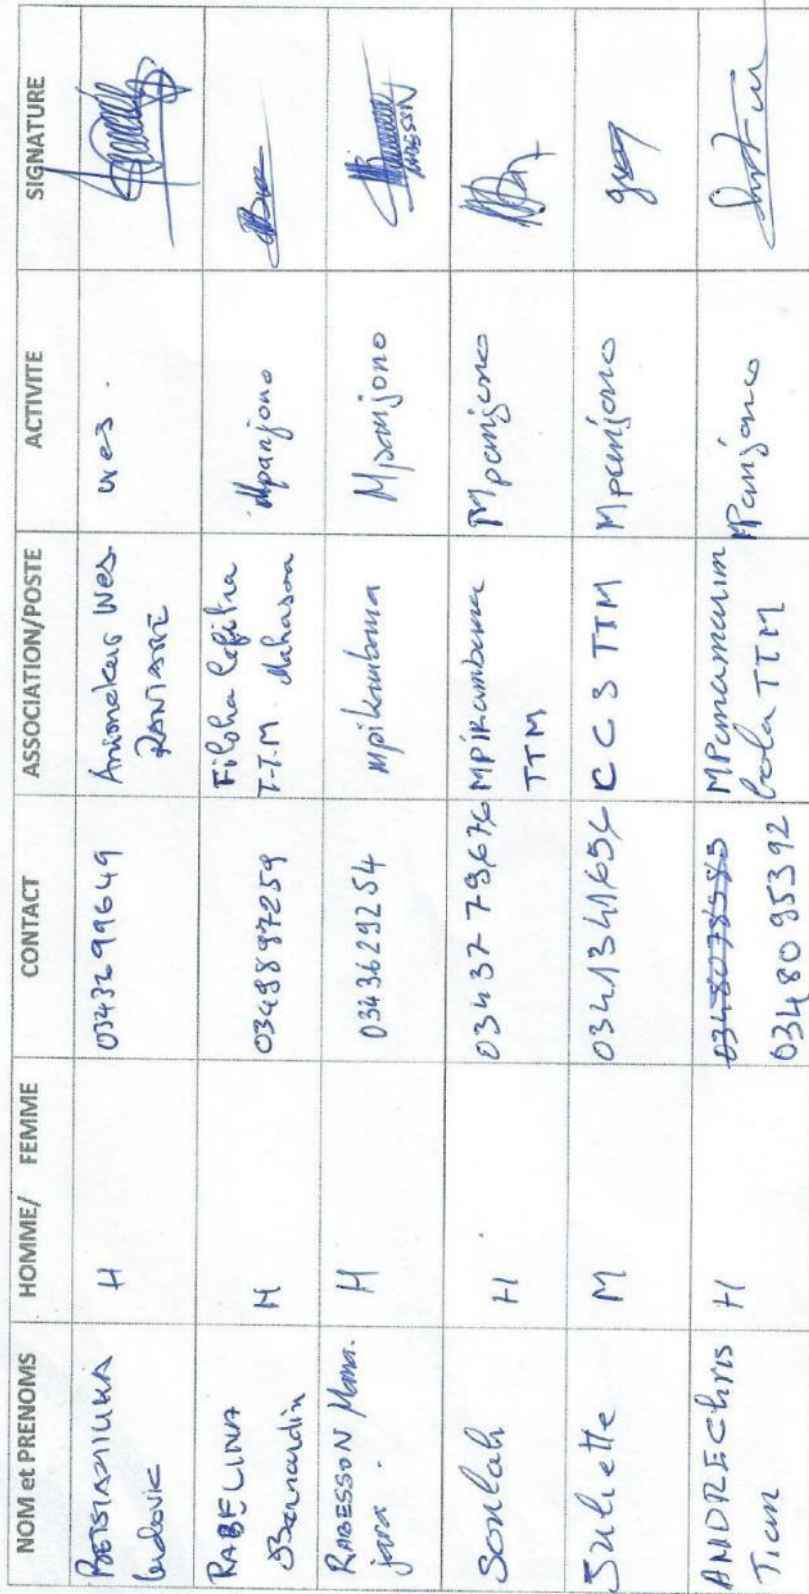 NOM et PRENOMS HOMME/ FEMME CONTACT ASSOCIATION/POSTE ACTIVITE SIGNATURE
Ludovic H 0343299649 Wes
RABELINA Bernardin H 0349897259 Filoha Lefitra T.T.M. Mahasoa Mpanjono
RABESSON Mamajara. H 0343629254 mpikambana Mpanjono
Sonlah H 0343779676 MPikambana TTM Mpanjono
Juliette M 0341341656 CCS TTM Mpanjono
ANDRE Chris Tian H 0348078585
0348095392 MPamamarim bola TTM MPanjono